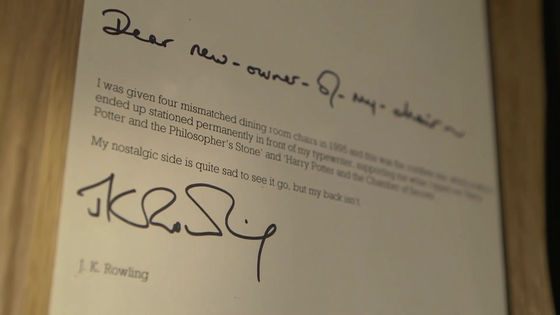 Dear new-owner-of-my-chair
I was given four mismatched dining room chairs in 1995 and this was the
ended up stationed permanently in front of my typewriter, supporting me while I typed out 'Harry
Potter and the Philosopher's Stone' and 'Harry Potter and the Chamber of Secrets'
My nostalgic side is quite sad to see it go, but my back isn't.
JKRowling
J. K. Rowling